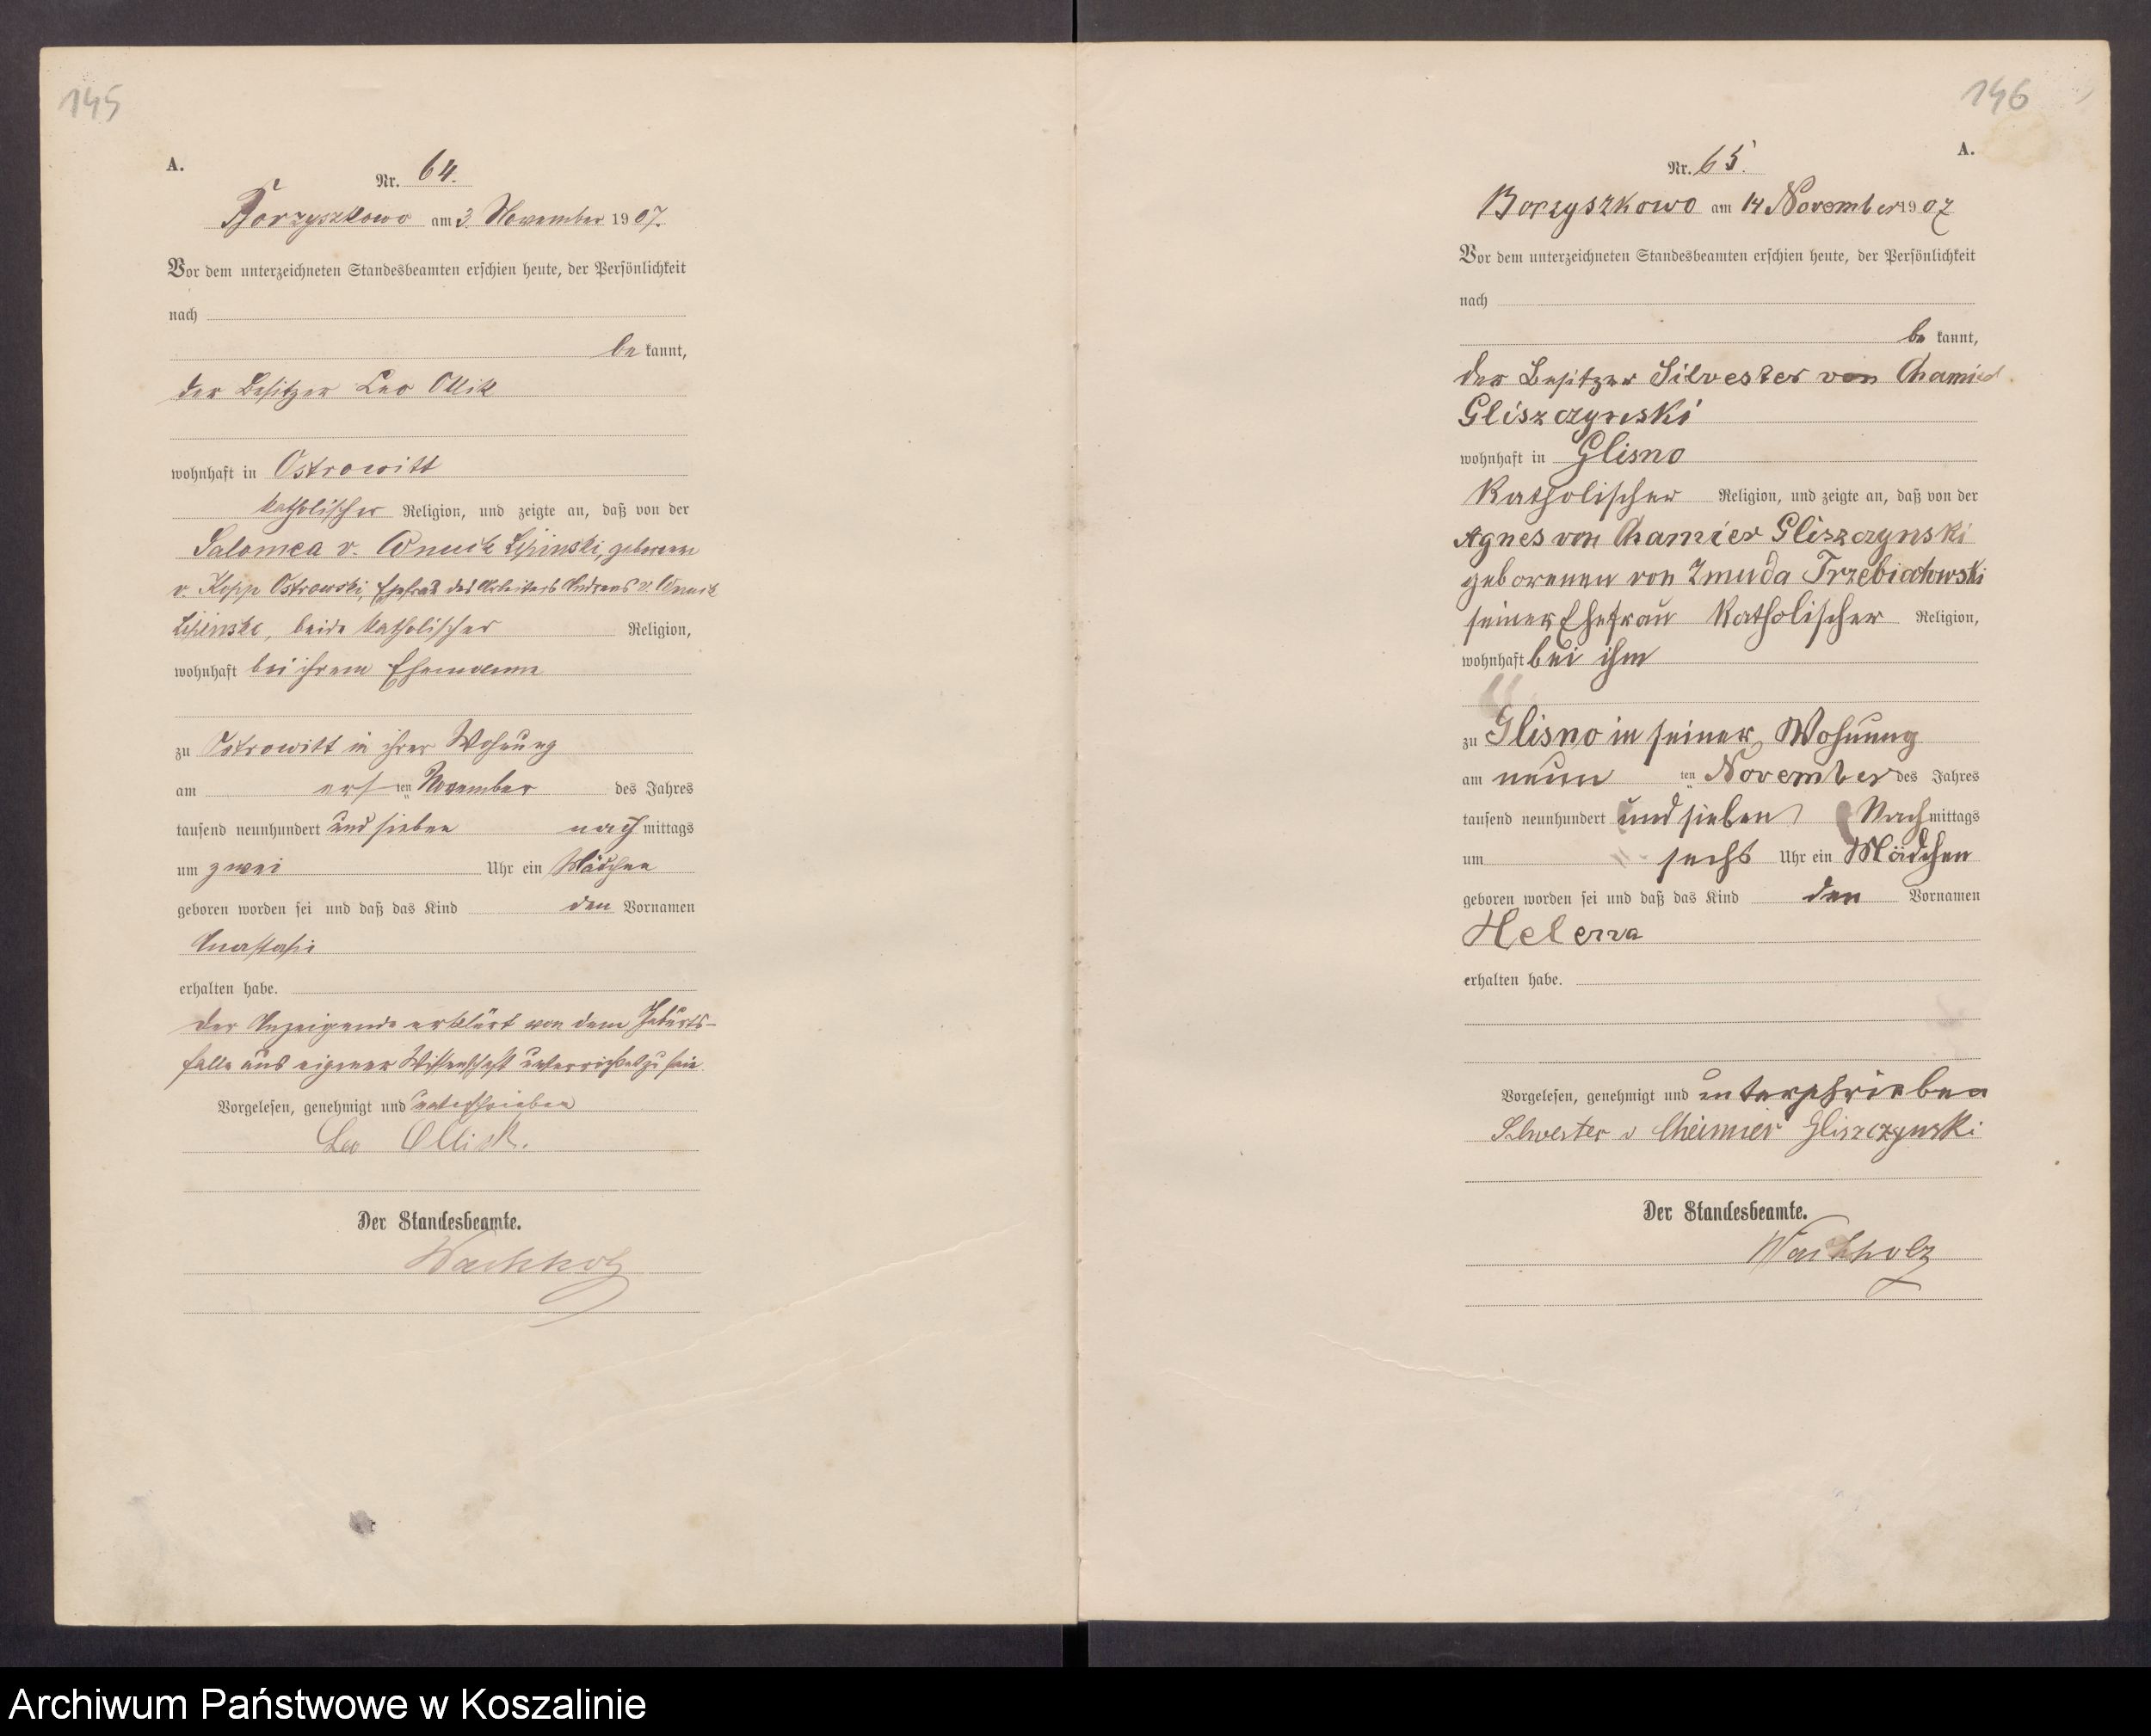 145
A.
Nr. 64.
Borzyszkowo am 3. November 1907.
Vor dem unterzeichneten Standesbeamten erschien heute, der Persönlichkeit
nach
be kannt,
der Besitzer Leo Ollik
wohnhaft in Ostrowitt
katholischer Religion, und zeigte an, daß von der
Salomea v. Wnuck Lipinski, geborenen
v. Kopp Ostrowski, Ehefrau des Arbeiters Andreas v. Wnuck
Lipinski, beide katholischer Religion,
wohnhaft bei ihrem Ehemanne
zu Ostrowitt in ihrer Wohnung
am ersten November des Jahres
tausend neunhundert und sieben nachmittags
um zwei Uhr ein Mädchen
geboren worden sei und daß das Kind den Vornamen
Anastasia
erhalten habe.
Der Anzeigende erklärt von dem Geburts-
falle aus eigener Wissenschaft unterrichtet zu sein.
Vorgelesen, genehmigt und unterschrieben
Leo Ollik.
Der Standesbeamte.
Wachholz
146
A.
Nr. 65.
Borzyszkowo am 14 November 1907
Vor dem unterzeichneten Standesbeamten erschien heute, der Persönlichkeit
nach
be kannt,
der Besitzer Silvester von Chamier
Gliszczynski
wohnhaft in Glisno
Katholischer Religion, und zeigte an, daß von der
Agnes von Chamier Gliszczynski
geborenen von Zmuda Trzebiatowski
seiner Ehefrau Katholischer Religion,
wohnhaft bei ihm
zu Glisno in seiner Wohnung
am neun ten November des Jahres
tausend neunhundert und sieben Nachmittags
um sechs Uhr ein Mädchen
geboren worden sei und daß das Kind den Vornamen
Helena
erhalten habe.
Vorgelesen, genehmigt und unterschrieben
Silvester v Chamier Gliszczynski
Der Standesbeamte.
Wachholz
Archiwum Państwowe w Koszalinie